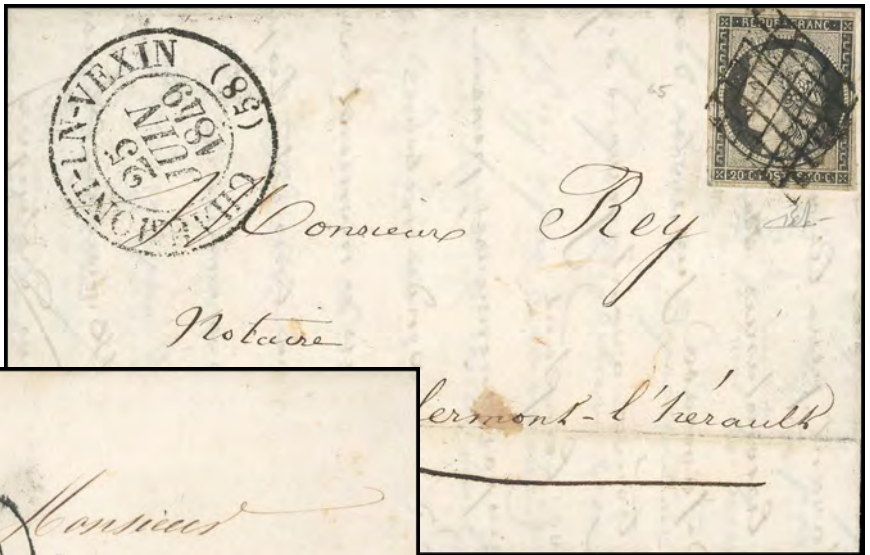 CHAUMONT-EN-VEXIN (58)
25
JUIN
1849
REPUB. FRANC.
20 C. POSTES 20 C.
Monsieur Rey
Notaire
lermont-l'hérault
Monsieur